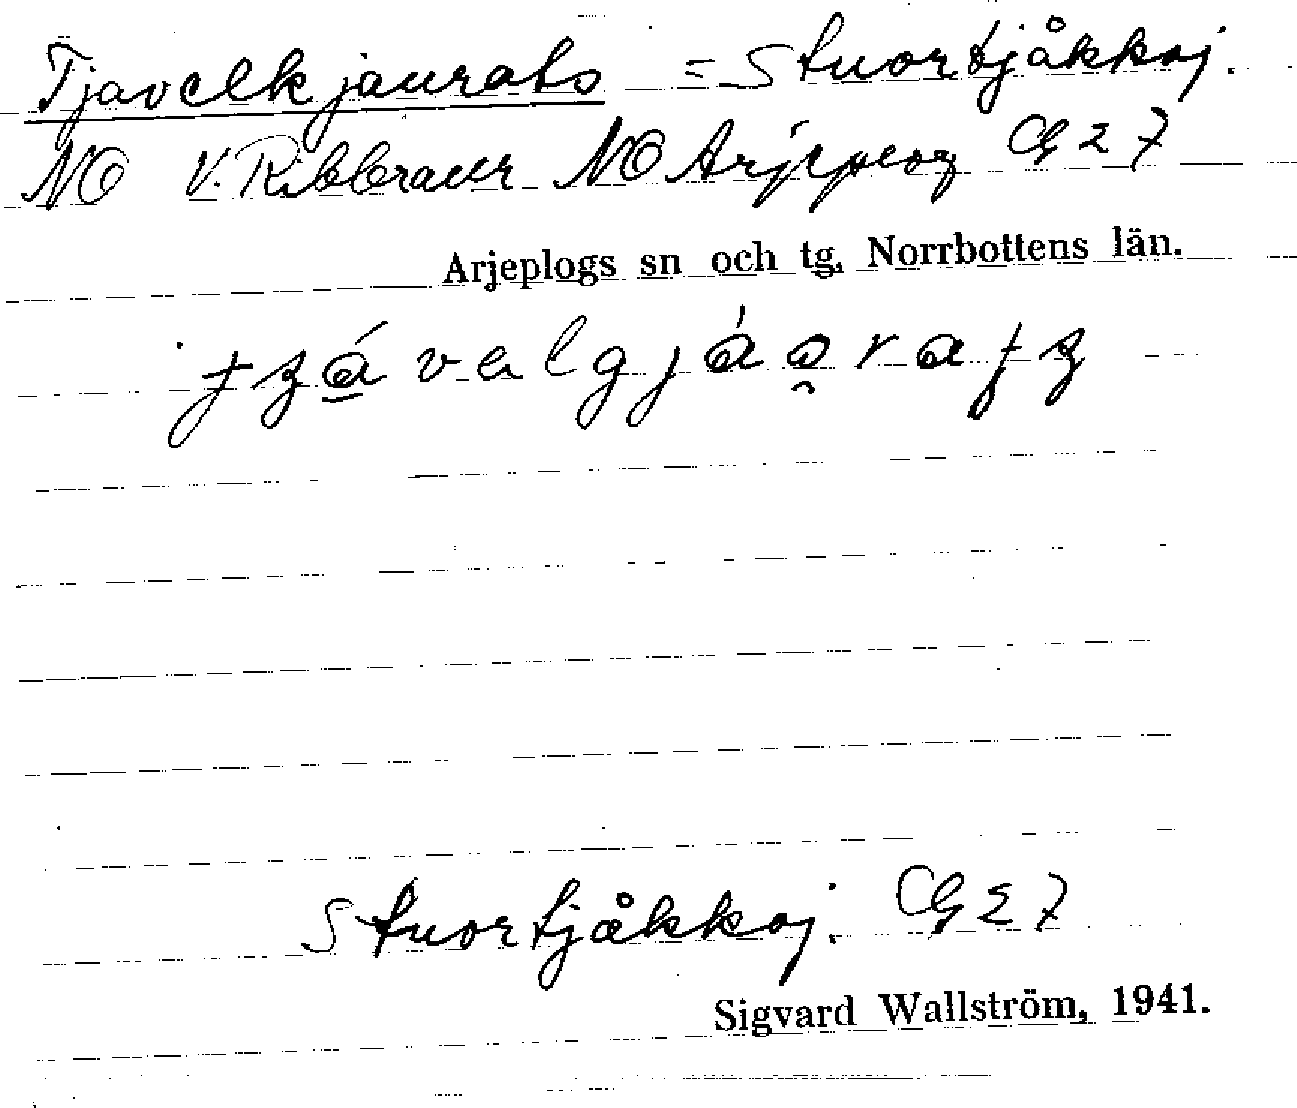 Tjavelkjaurats = Stuortjåkkaj.
NO V. Ribbraur NO Arjeplog G 27
Arjeplogs sn och tg, Norrbottens län.
Stuortjåkkaj. G 27
Sigvard Wallström, 1941.